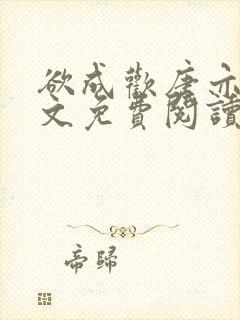 欲成歡唐亦
文免費閱讀
帝歸